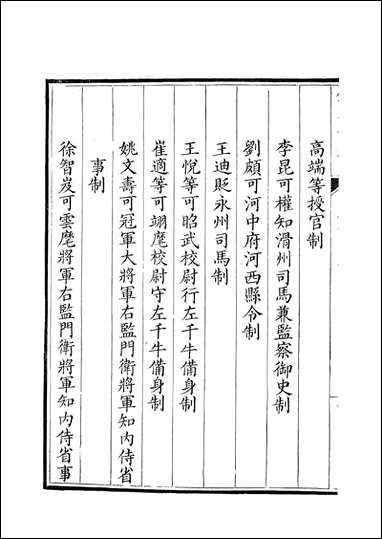 高端等授官制
李昆可權知滑州司馬兼監察御史制
劉頗可河中府河西縣令制
王迪貶永州司馬制
王悅等可昭武校尉行左千牛備身制
崔適等可翊麾校尉守左千牛備身制
姚文壽可冠軍大將軍右監門衛將軍知內侍省
事制
徐智岌可雲麾將軍右監門衛將軍知內侍省事